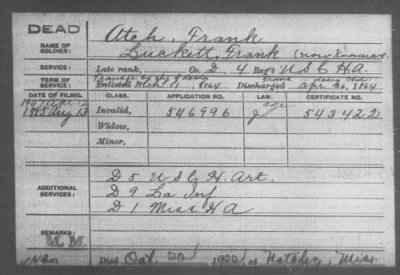 DEAD
NAME OF SOLDIER:
Atch, Frank
Luckett, Frank (now known as
SERVICE:
Late rank, Co. D, 4 Reg't U S C H.A.
TERM OF SERVICE:
Enlisted Mch. 11, 1864 Discharged Apr 26, 1864
DATE OF FILING. CLASS. APPLICATION NO. LAW. CERTIFICATE NO.
1888 Aug 13 Invalid, 546996 J 543422
Widow,
Minor,
ADDITIONAL SERVICES:
D 5 U S C H. Art.
D 9 La Inf
D 1 Miss H A
REMARKS:
M. M.
Died Oct. 20, 1920, at Natchez, Miss.